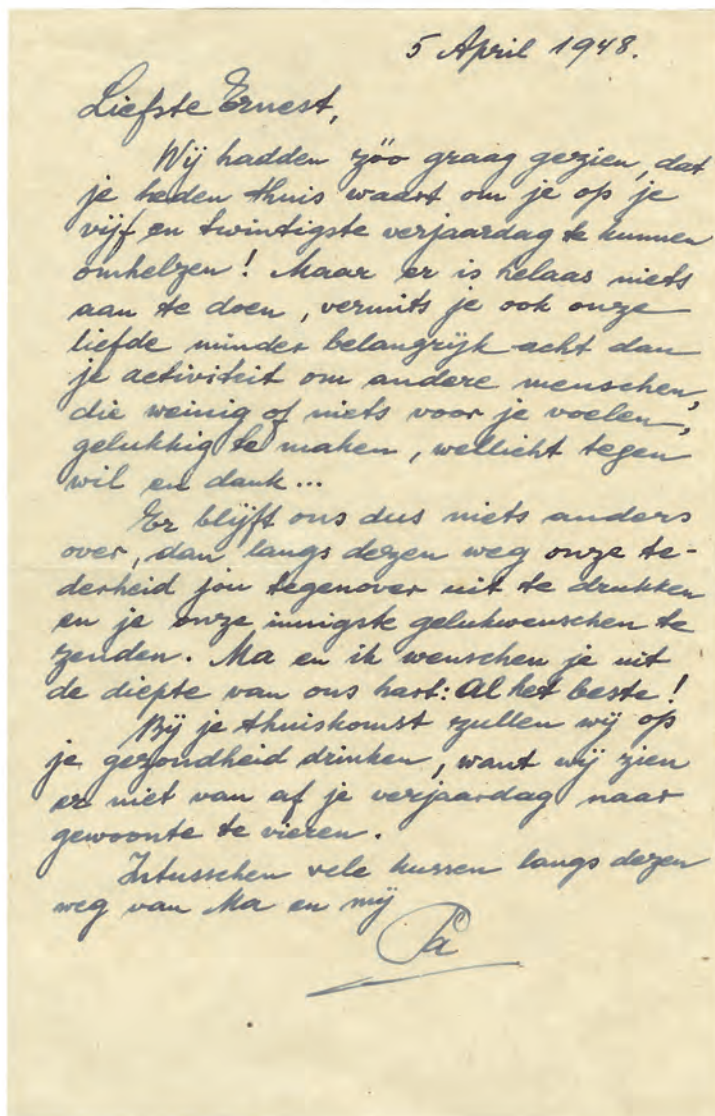 5 April 1948.
Liefste Ernest,
Wij hadden zöo graag gezien, dat
je heden thuis waart om je op je
vijf en twintigste verjaardag te kunnen
omhelzen! Maar er is helaas niets
aan te doen, vermits je ook onze
liefde minder belangrijk acht dan
je activiteit om andere menschen,
die weinig of niets voor je voelen,
gelukkig te maken, wellicht tegen
wil en dank...
Er blijft ons dus niets anders
over, dan langs dezen weg onze te-
derheid jou tegenover uit te drukken
en je onze innigste gelukwenschen te
zenden. Ma en ik wenschen je uit
de diepte van ons hart: Al het beste!
Bij je thuiskomst zullen wij op
je gezondheid drinken, want wij zien
er niet van af je verjaardag naar
gewoonte te vieren.
Intusschen vele kussen langs dezen
weg van Ma en mij
Pa